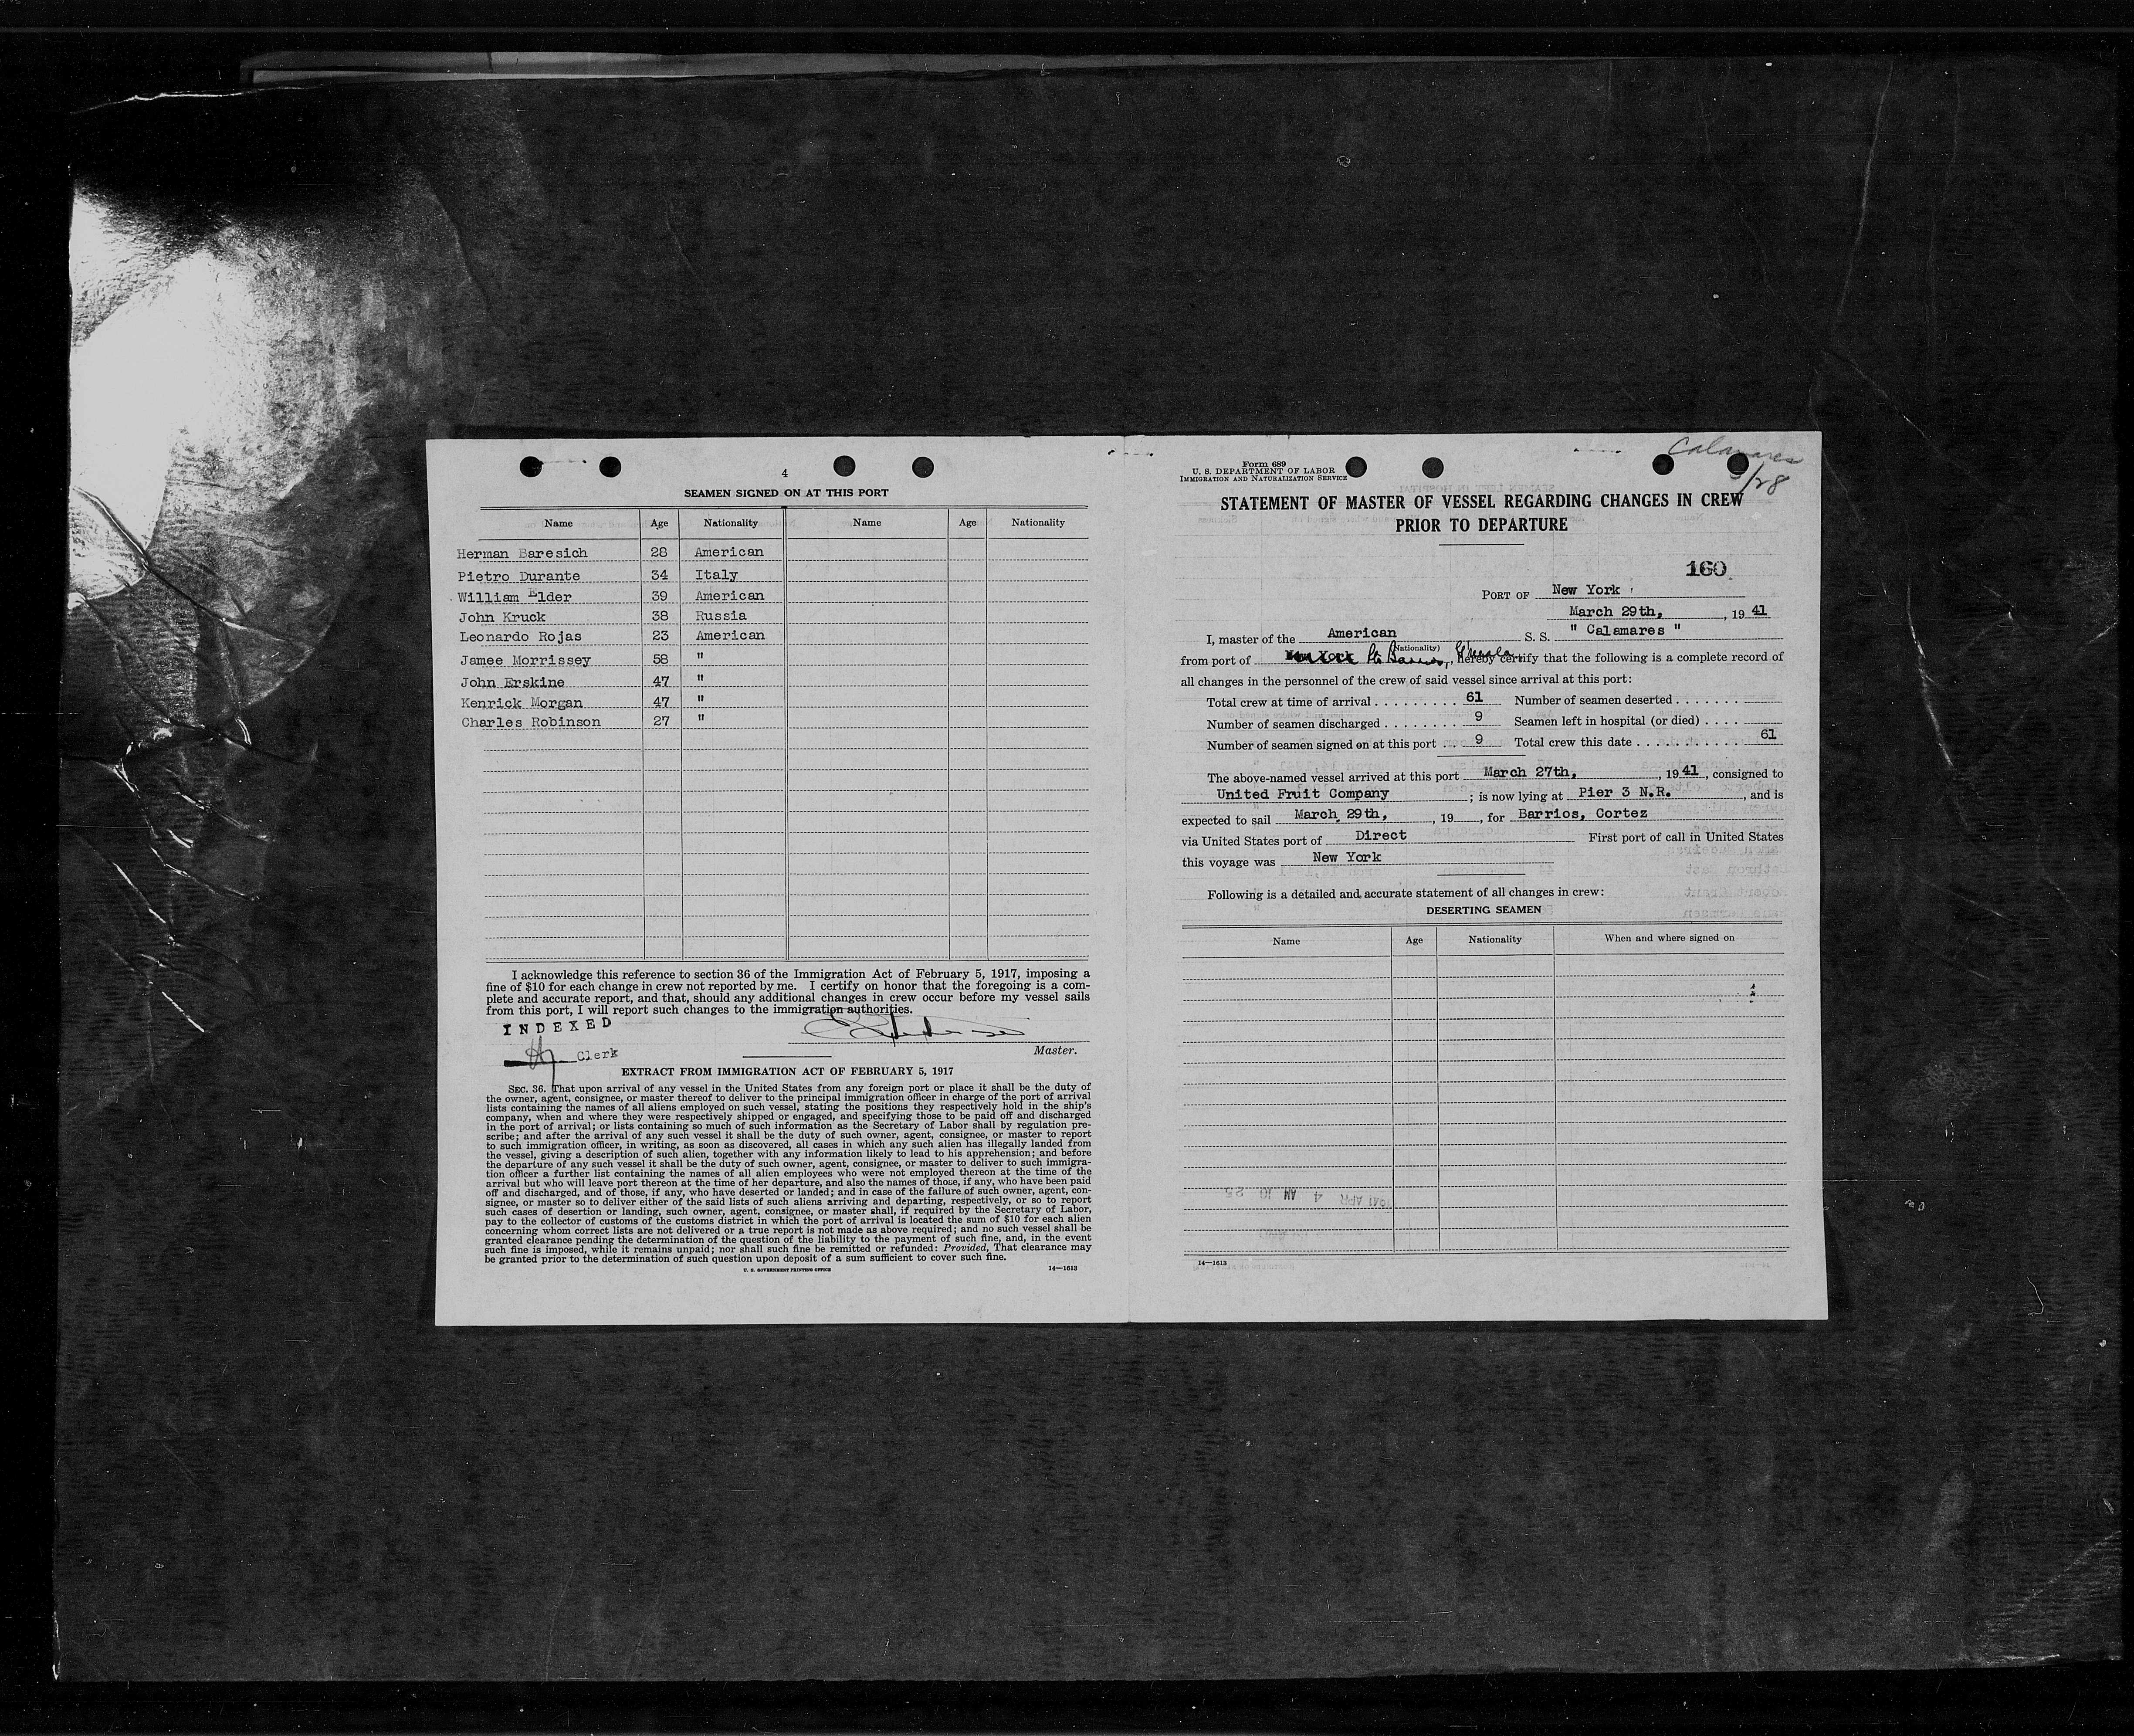 4
SEAMEN SIGNED ON AT THIS PORT
Name Age Nationality Name Age Nationality
Herman Baresich 28 American
Pietro Durante 34 Italy
William Elder 39 American
John Kruck 38 Russia
Leonardo Rojas 23 American
Jamee Morrissey 58 "
John Erskine 47 "
Kenrick Morgan 47 "
Charles Robinson 27 "
I acknowledge this reference to section 36 of the Immigration Act of February 5, 1917, imposing a
fine of $10 for each change in crew not reported by me. I certify on honor that the foregoing is a com-
plete and accurate report, and that, should any additional changes in crew occur before my vessel sails
from this port, I will report such changes to the immigration authorities.
INDEXED
Clerk
Master.
EXTRACT FROM IMMIGRATION ACT OF FEBRUARY 5, 1917
SEC. 36. That upon arrival of any vessel in the United States from any foreign port or place it shall be the duty of
the owner, agent, consignee, or master thereof to deliver to the principal immigration officer in charge of the port of arrival
lists containing the names of all aliens employed on such vessel, stating the positions they respectively hold in the ship's
company, when and where they were respectively shipped or engaged, and specifying those to be paid off and discharged
in the port of arrival; or lists containing so much of such information as the Secretary of Labor shall by regulation pre-
scribe; and after the arrival of any such vessel it shall be the duty of such owner, agent, consignee, or master to report
to such immigration officer, in writing, as soon as discovered, all cases in which any such alien has illegally landed from
the vessel, giving a description of such alien, together with any information likely to lead to his apprehension; and before
the departure of any such vessel it shall be the duty of such owner, agent, consignee, or master to deliver to such immigra-
tion officer a further list containing the names of all alien employees who were not employed thereon at the time of the
arrival but who will leave port thereon at the time of her departure, and also the names of those, if any, who have been paid
off and discharged, and of those, if any, who have deserted or landed; and in case of the failure of such owner, agent, con-
signee, or master so to deliver either of the said lists of such aliens arriving and departing, respectively, or so to report
such cases of desertion or landing, such owner, agent, consignee, or master shall, if required by the Secretary of Labor,
pay to the collector of customs of the customs district in which the port of arrival is located the sum of $10 for each alien
concerning whom correct lists are not delivered or a true report is not made as above required; and no such vessel shall be
granted clearance pending the determination of the question of the liability to the payment of such fine, and, in the event
such fine is imposed, while it remains unpaid; nor shall such fine be remitted or refunded: Provided, That clearance may
be granted prior to the determination of such question upon deposit of a sum sufficient to cover such fine.
U. S. GOVERNMENT PRINTING OFFICE 14—1613
Calamares
3/28
Form 689
U. S. DEPARTMENT OF LABOR
IMMIGRATION AND NATURALIZATION SERVICE
STATEMENT OF MASTER OF VESSEL REGARDING CHANGES IN CREW
PRIOR TO DEPARTURE
160
PORT OF New York
March 29th, , 19 41
I, master of the American S. S. " Calamares "
(Nationality)
from port of New York Pto Barrios, hereby certify that the following is a complete record of
all changes in the personnel of the crew of said vessel since arrival at this port:
Total crew at time of arrival 61 Number of seamen deserted
Number of seamen discharged 9 Seamen left in hospital (or died)
Number of seamen signed on at this port 9 Total crew this date 61
The above-named vessel arrived at this port March 27th, , 19 41 , consigned to
United Fruit Company ; is now lying at Pier 3 N.R. , and is
expected to sail March 29th, , 19 , for Barrios, Cortez
via United States port of Direct First port of call in United States
this voyage was New York
Following is a detailed and accurate statement of all changes in crew:
DESERTING SEAMEN
Name Age Nationality When and where signed on
1941 APR 4 AM 10 25
14—1613